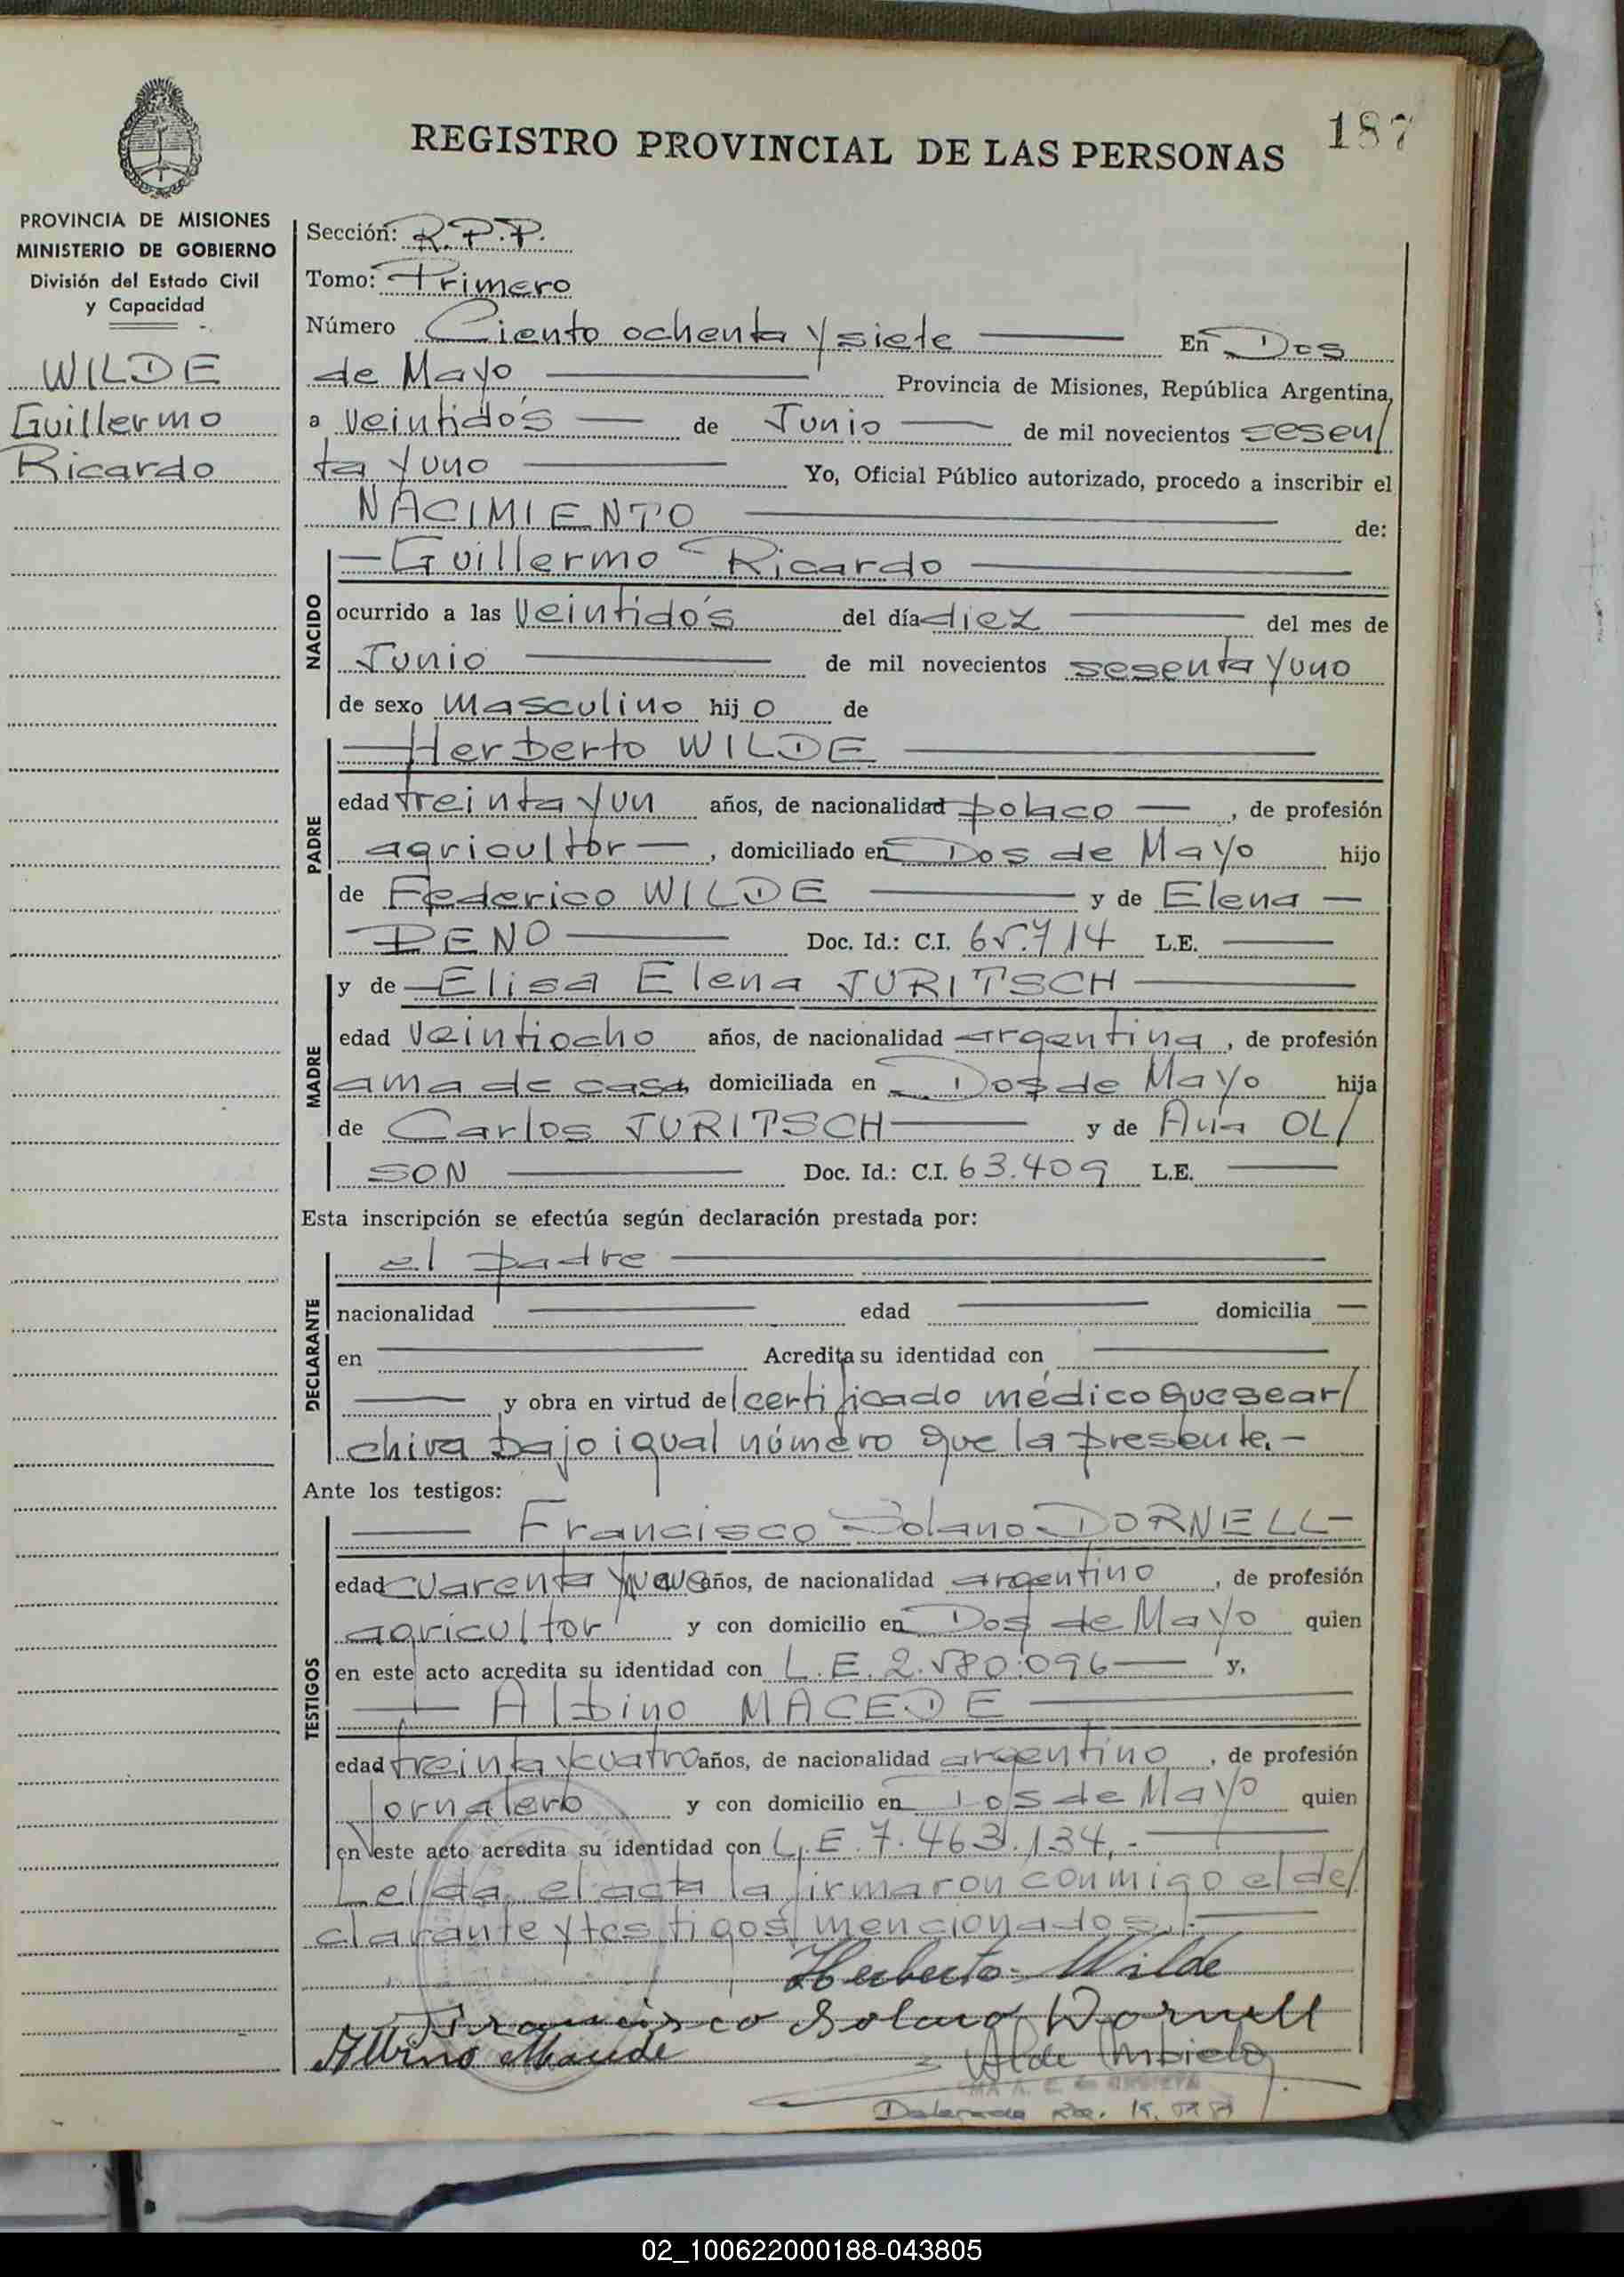 187
REGISTRO PROVINCIAL DE LAS PERSONAS
PROVINCIA DE MISIONES
MINISTERIO DE GOBIERNO
División del Estado Civil
y Capacidad
WILDE
Guillermo
Ricardo
Sección: R.P.P.
Tomo: Primero
Número Ciento ochenta y siete En Dos
de Mayo Provincia de Misiones, República Argentina,
a veintidós de Junio de mil novecientos sesen/
ta y uno Yo, Oficial Público autorizado, procedo a inscribir el
NACIMIENTO de:
NACIDO
Guillermo Ricardo
ocurrido a las veintidós del día diez del mes de
Junio de mil novecientos sesenta y uno
de sexo masculino hijo de
PADRE
Herberto WILDE
edad treinta y un años, de nacionalidad polaco, de profesión
agricultor, domiciliado en Dos de Mayo hijo
de Federico WILDE y de Elena
PENO Doc. Id.: C.I. 65.714 L.E.
MADRE
y de Elisa Elena JURITSCH
edad veintiocho años, de nacionalidad argentina, de profesión
ama de casa, domiciliada en Dos de Mayo hija
de Carlos JURITSCH y de Ana OL/
SON Doc. Id.: C.I. 63.409 L.E.
Esta inscripción se efectúa según declaración prestada por:
DECLARANTE
el padre
nacionalidad edad domicilia
en Acredita su identidad con
y obra en virtud del certificado médico que se ar/
chiva bajo igual número que la presente.-
Ante los testigos:
TESTIGOS
Francisco Solano DORNELL-
edad cuarenta y nueve años, de nacionalidad argentino, de profesión
agricultor y con domicilio en Dos de Mayo quien
en este acto acredita su identidad con L.E. 2.580.096 y,
Albino MACEDE
edad treinta y cuatro años, de nacionalidad argentino, de profesión
jornalero y con domicilio en Dos de Mayo quien
en este acto acredita su identidad con L.E. 7.463.134.-
Leída el acta la firmaron conmigo el de/
clarante y testigos mencionados.-
Herberto Wilde
Francisco Solano Dornell
Albino
02_100622000188-043805